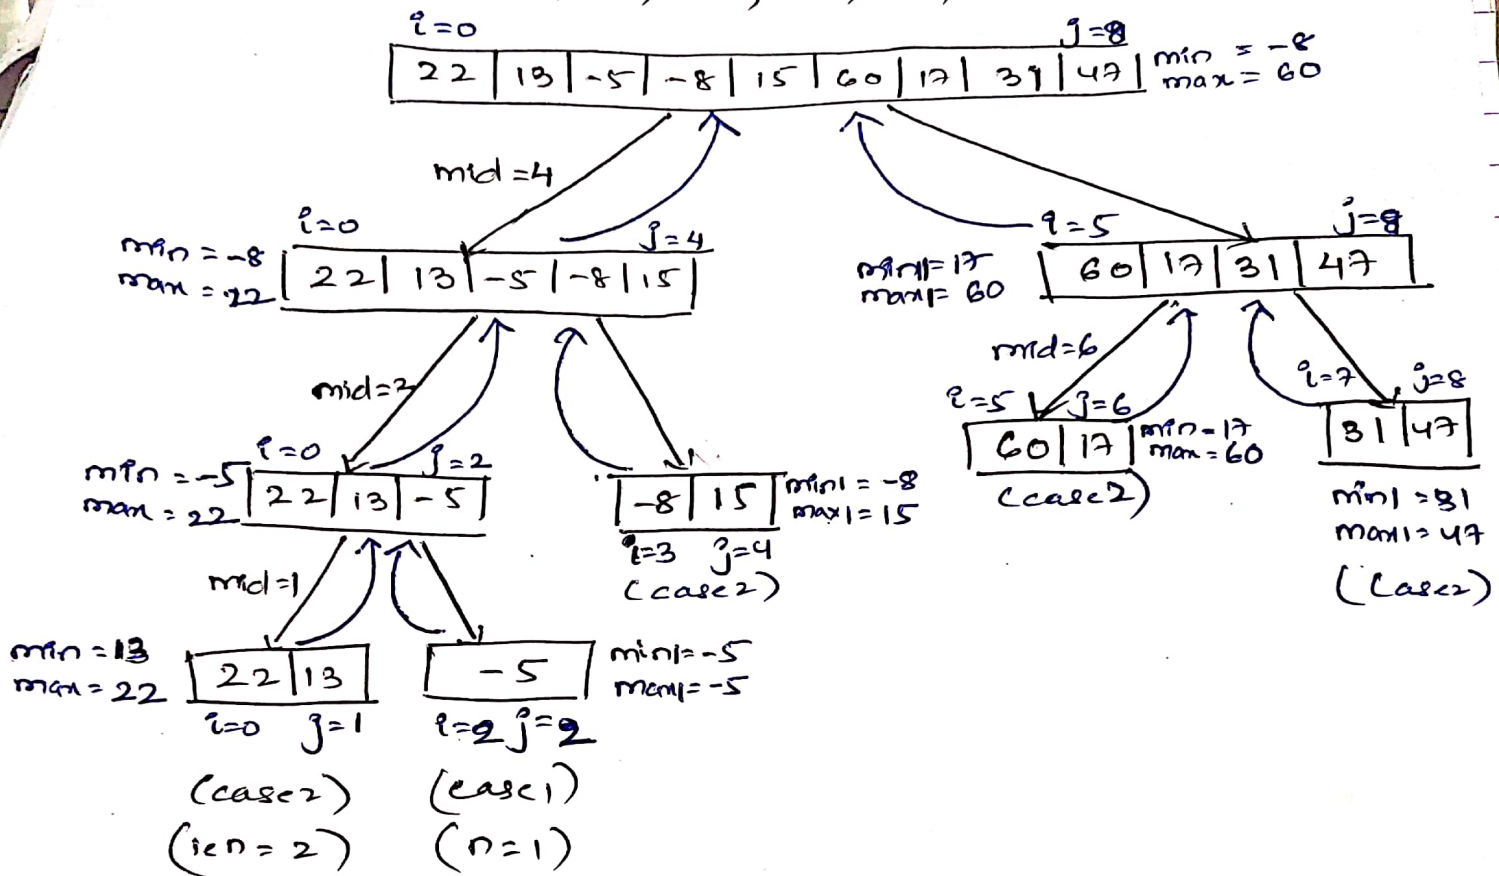 i=0 j=8
22 | 13 | -5 | -8 | 15 | 60 | 17 | 31 | 47
min = -8
max = 60
mid=4
i=0 j=4
min = -8
max = 22
22 | 13 | -5 | -8 | 15
i=5 j=8
min1=17
max1=60
60 | 17 | 31 | 47
mid=2
mid=6
i=0 j=2
min = -5
max = 22
22 | 13 | -5
-8 | 15
min1 = -8
max1 = 15
i=3 j=4
(case2)
i=5 j=6
60 | 17
min=17
max=60
(case2)
i=7 j=8
31 | 47
min1=31
max1=47
(case2)
mid=1
min=13
max=22
22 | 13
i=0 j=1
(case2)
(len=2)
-5
min1=-5
max1=-5
i=2 j=2
(case1)
(n=1)